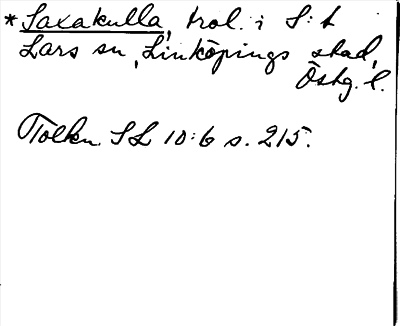 * Saxakulla, trol. i S:t
Lars sn, Linköpings stad,
Östg. l.
Tolken SL 10:6 s. 215.